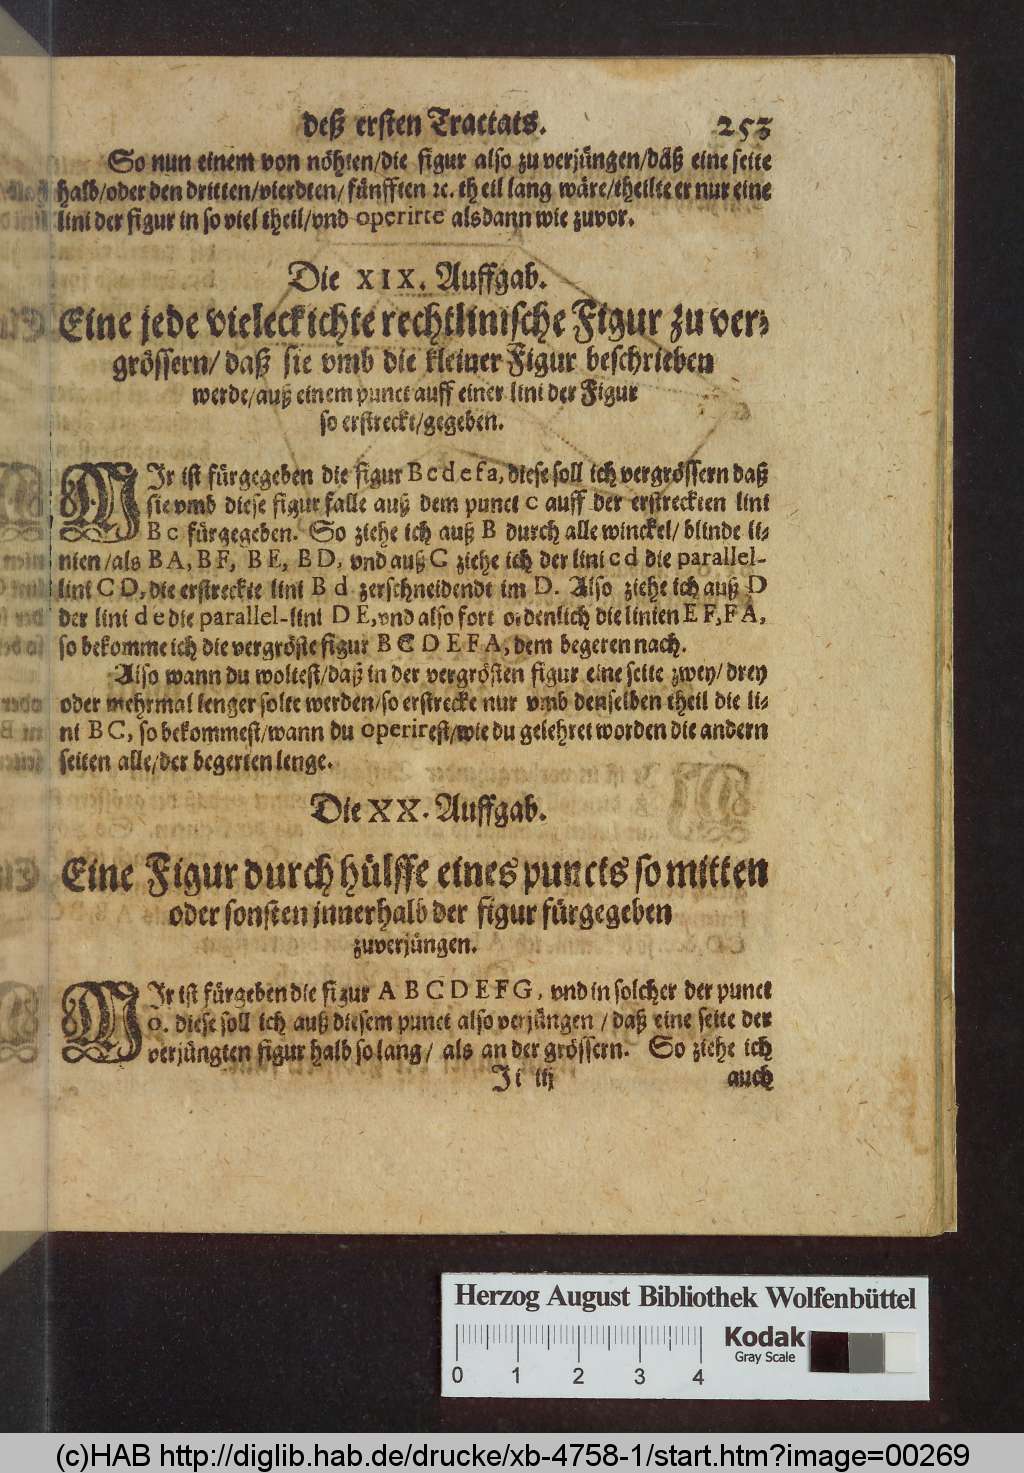 deß ersten Tractats. 253
So nun einem von nöhten/die figur also zu verjüngen/däß eine seite
halb/oder den dritten/vierdten/fünfften ꝛc. theil lang wäre/theilte er nur eine
lini der figur in so viel theil/vnd operirte alsdann wie zuvor.
Die XIX. Auffgab.
Eine jede vieleckichte rechtlinische Figur zu ver⸗
grössern/daß sie vmb die kleiner Figur beschrieben
werde/auß einem punct auff einer lini der Figur
so erstreckt/gegeben.
MIr ist fürgegeben die figur B c d e f a, diese soll ich vergrössern daß
sie vmb diese figur falle auß dem punct c auff der erstreckten lini
B c fürgegeben. So ziehe ich auß B durch alle winckel/blinde li⸗
nien/als B A, B F, B E, B D, vnd auß C ziehe ich der lini c d die parallel-
lini C D, die erstreckte lini B d zerschneidendt im D. Also ziehe ich auß D
der lini d e die parallel-lini D E, vnd also fort ordenlich die linien E F, F A,
so bekomme ich die vergröste figur B C D E F A, dem begeren nach.
Also wann du woltest/daß in der vergrösten figur eine seite zwey/drey
oder mehrmal lenger solte werden/so erstrecke nur vmb denselben theil die li⸗
ni B C, so bekommest/wann du operirest/wie du gelehret worden die andern
seiten alle/der begerten lenge.
Die XX. Auffgab.
Eine Figur durch hülffe eines puncts so mitten
oder sonsten jnnerhalb der figur fürgegeben
zuverjüngen.
MIr ist fürgeben die figur A B C D E F G, vnd in solcher der punct
o. diese soll ich auß diesem punct also verjüngen/daß eine seite der
verjüngten figur halb so lang/als an der grössern. So ziehe ich
Ji iij auch
Herzog August Bibliothek Wolfenbüttel
Kodak
Gray Scale
0 1 2 3 4
(c)HAB http://diglib.hab.de/drucke/xb-4758-1/start.htm?image=00269